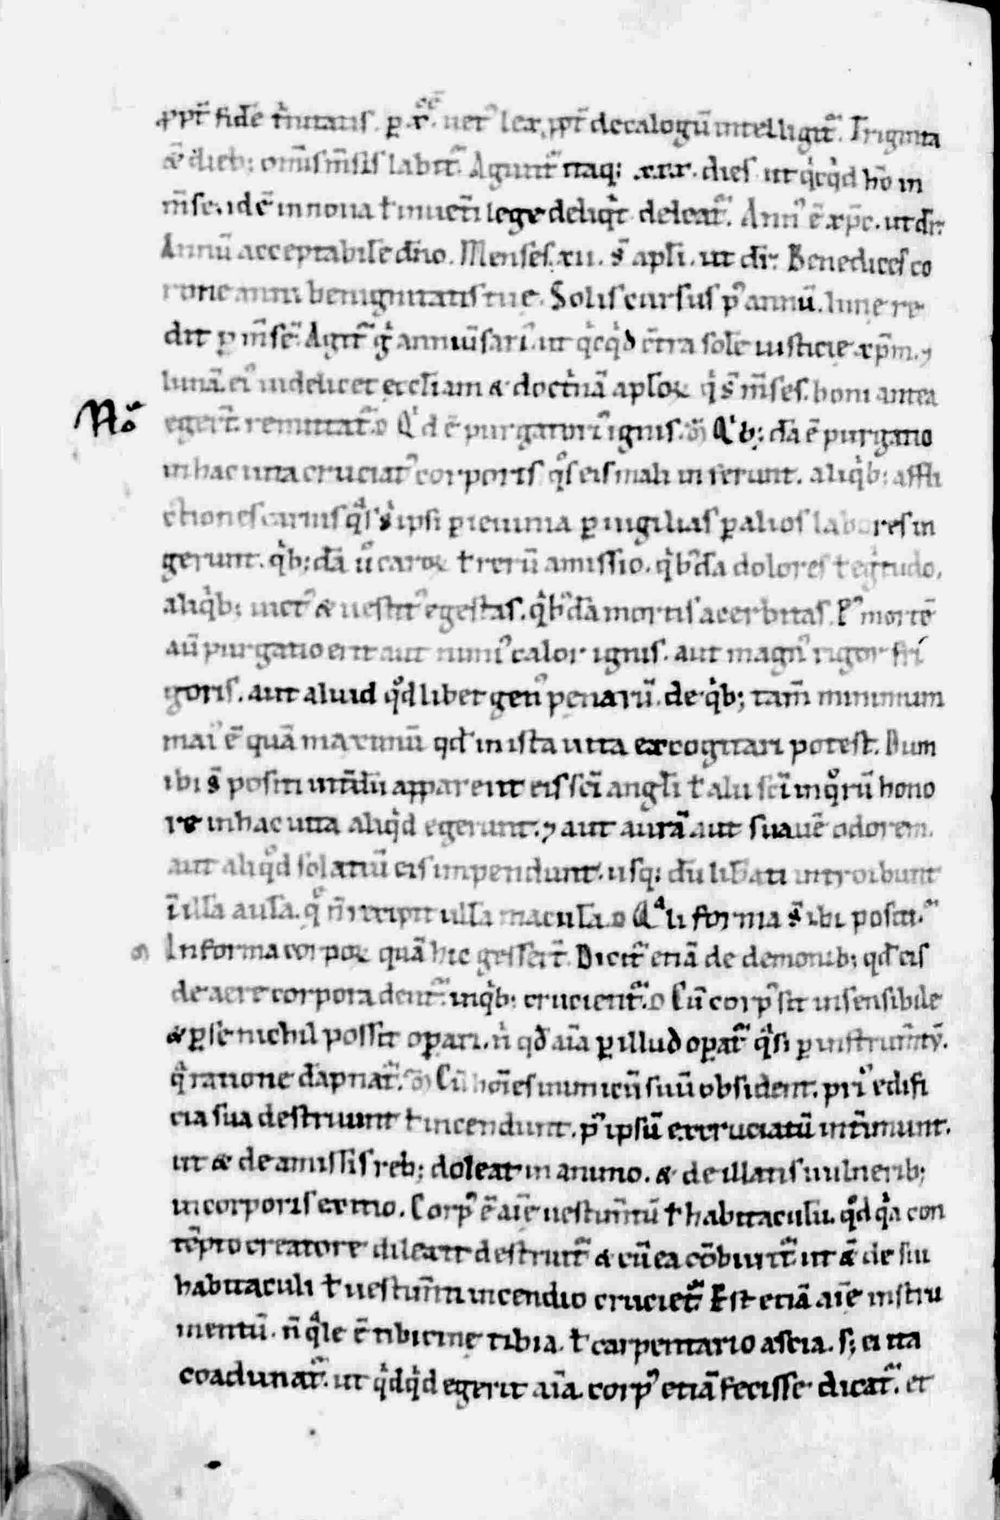 ꝓpt̄ fidē t̄nitatis. ꝑ .x. uet᾽ lex ꝓpt̄ decalogū intelligit᷑. Triginta
&̄ dieb; om̄is m̄sis labit᷑. Agunt᷑ itaq; .xxx. dies ut qͥcqͥd hō in
m̄se. idē in noua ł in uet̄i lege deliqͥt deleat᷑. Ann᾽ ē xp̄c. ut dr̄.
Annū acceptabilē dn̄o. Menses .xii. s̄ apl̄i. ut dr̄. Benedices co
rone anni benignitatis tue. Solis cursus ꝑ annū. lune re
dit ꝑ m̄sē. Agit᷑ gͥ anniūsari᾽ ut qͥcqͥd cͣ solē iusticie xp̄m. ⁊
lunā ei᾽ uidelicet eccl̄iam & doctͥnā aploꝝ qͥ s̄ m̄ses. boni antea
No᷑
egert̄ remittat᷑. D Qͥd ē purgatori᾽ ignis. M̄ Qͥb; dā ē purgatio
in hac uita cruciat᾽ corporis qͦs eis mali inferunt. aliqͥb; affli
ctiones carnis qͣs s̄ ipsi ꝑ ieiunia ꝑ uigilias ꝑ alios labores in
gerunt. qͥb;dā ū caroꝝ ł rerū amissio. qͥb;dā dolores ł egͥtudo.
aliqͥb; uict᾽ & uestit᾽ egestas. qͥb;dā mortis acerbitas. P᾽ mortē
aū purgatio erit aut nimi᾽ calor ignis. aut magn᾽ rigor fri
goris. aut aliud qͦdlibet gen᾽ penarū. de qͥb; tam̄ minimum
mai᾽ ē quā maximū qd̄ in ista uita excogitari potest. Dum
ibi s̄ positi int̄dū apparent eis sc̄i angl̄i ł alii sc̄i in qͦrū hono
re in hac uita aliqͥd egerunt. ⁊ aut aurā aut suauē odorem.
aut aliqͦd solatiū eis impendunt. usq; dū lib̄ati introibunt
ī illa aula. qͦ n̄ recipit ulla macula. D Qͣli forma s̄ ibi positi. M̄
In forma corpoꝝ quā hic gesser̄t. Dicit᷑ etiā de demonib; qd̄ eis
de aere corpora dent᷑. in qͥb; crucient᷑. D Cū corp᾽ sit insensibile
& ꝑ se nichil possit oꝑari. nͥ qd̄ aīa ꝑ illud oꝑat᷑ qͣsi ꝑ instrum̄tū.
qͣ ratione dāpnat᷑. M̄ Cū hoīes inimicū suū obsident. pri᾽ edifi
cia sua destruunt ł incendunt. p᾽ ipsū excruciatū int̄imunt.
ut & de amissis reb; doleat in animo. & de illatis uulnerib;
in corporis exitio. Corp᾽ ē aīe uestim̄tū ł habitaculū. qͦd qͥa con
tēpto creatore dilexit destruit᷑ & cū ea cōburit᷑ ut &̄ de sui
habitaculi ł uestim̄ti incendio cruciet᷑. Est etiā aīe instru
mentū. n̄ qͣle ē tibicine tibia. ł carpentario ascia. s; ei ita
coadunat᷑. ut qͥdqͥd egerit aīa. corp᾽ etiā fecisse dicat᷑. et